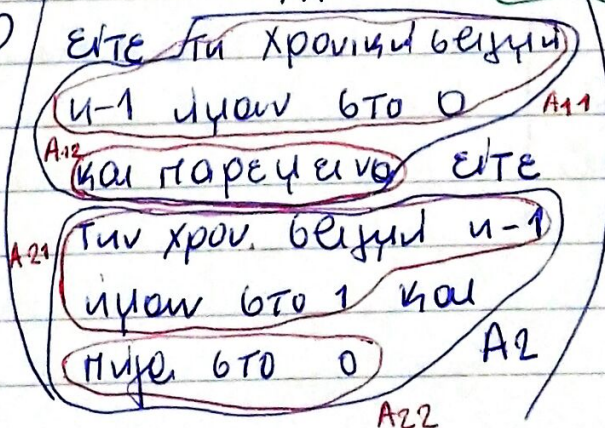 είτε τη χρονική στιγμή
n-1 ήμουν στο 0 A11
A12 και παρέμεινα είτε
A21 την χρον. στιγμή n-1
ήμουν στο 1 και
πήγα στο 0 A2
A22